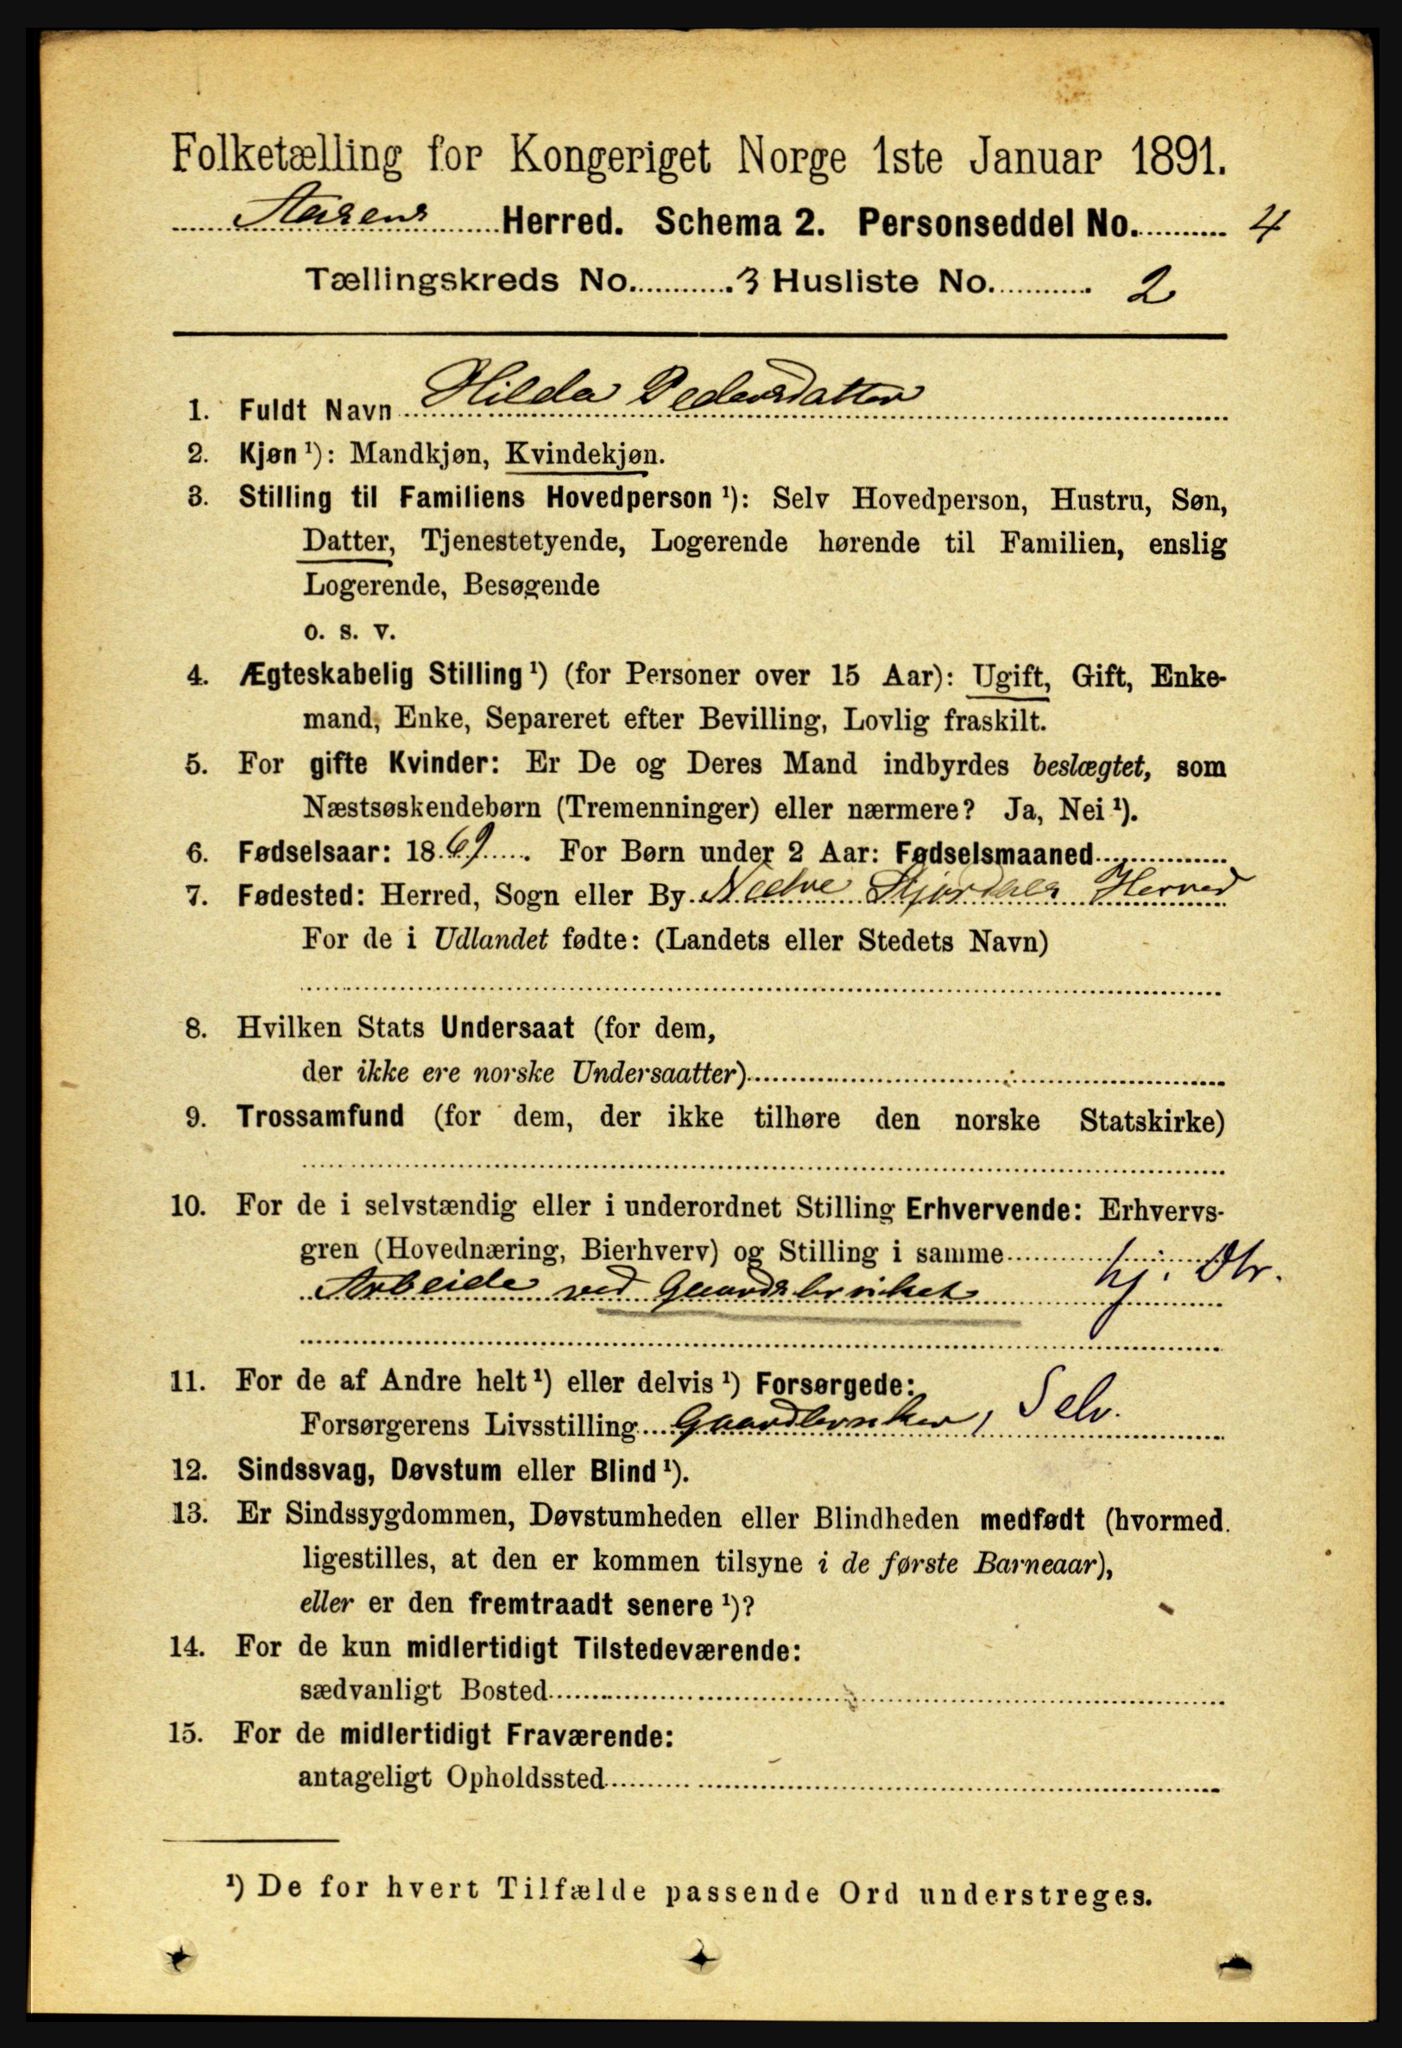 Folketælling for Kongeriget Norge 1ste Januar 1891.
Herred. Schema 2. Personseddel No. 4
Tællingskreds No. 3 Husliste No. 2
1. Fuldt Navn Hilda Pedersdatter
2. Kjøn ¹): Mandkjøn, Kvindekjøn.
3. Stilling til Familiens Hovedperson ¹): Selv Hovedperson, Hustru, Søn,
Datter, Tjenestetyende, Logerende hørende til Familien, enslig
Logerende, Besøgende
o. s. v.
4. Ægteskabelig Stilling ¹) (for Personer over 15 Aar): Ugift, Gift, Enke-
mand, Enke, Separeret efter Bevilling, Lovlig fraskilt.
5. For gifte Kvinder: Er De og Deres Mand indbyrdes beslægtet, som
Næstsøskendebørn (Tremenninger) eller nærmere? Ja, Nei ¹).
6. Fødselsaar: 1869. For Børn under 2 Aar: Fødselsmaaned
7. Fødested: Herred, Sogn eller By Nedre Stjørdals Herred
For de i Udlandet fødte: (Landets eller Stedets Navn)
8. Hvilken Stats Undersaat (for dem,
der ikke ere norske Undersaatter)
9. Trossamfund (for dem, der ikke tilhøre den norske Statskirke)
10. For de i selvstændig eller i underordnet Stilling Erhvervende: Erhvervs-
gren (Hovednæring, Bierhverv) og Stilling i samme hj. Dtr.
Arbeide ved Gaardsbruket
11. For de af Andre helt ¹) eller delvis ¹) Forsørgede:
Forsørgerens Livsstilling Gaardbruker, Selv.
12. Sindssvag, Døvstum eller Blind ¹).
13. Er Sindssygdommen, Døvstumheden eller Blindheden medfødt (hvormed
ligestilles, at den er kommen tilsyne i de første Barneaar),
eller er den fremtraadt senere ¹)?
14. For de kun midlertidigt Tilstedeværende:
sædvanligt Bosted
15. For de midlertidigt Fraværende:
antageligt Opholdssted
¹) De for hvert Tilfælde passende Ord understreges.